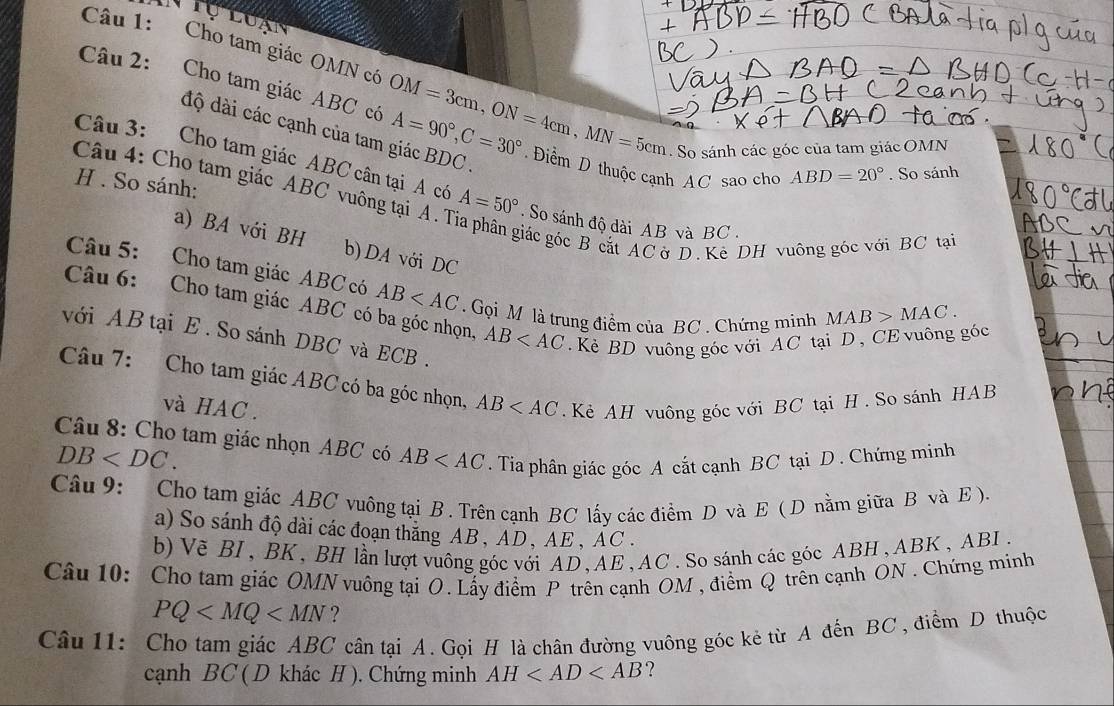 TỰ LUẬN
Câu 1: Cho tam giác OMN có OM = 3cm, ON = 4cm, MN = 5cm. So sánh các góc của tam giác OMN
Câu 2: Cho tam giác ABC có A = 90°, C = 30°. Điểm D thuộc cạnh AC sao cho ABD = 20°. So sánh
độ dài các cạnh của tam giác BDC.
Câu 3: Cho tam giác ABC cân tại A có A = 50°. So sánh độ dài AB và BC.
Câu 4: Cho tam giác ABC vuông tại A. Tia phân giác góc B cắt AC ở D. Kẻ DH vuông góc với BC tại
H. So sánh:
a) BA với BH b) DA với DC
Câu 5: Cho tam giác ABC có AB < AC. Gọi M là trung điểm của BC. Chứng minh MAB > MAC.
Câu 6: Cho tam giác ABC có ba góc nhọn, AB < AC. Kẻ BD vuông góc với AC tại D, CE vuông góc
với AB tại E. So sánh DBC và ECB.
Câu 7: Cho tam giác ABC có ba góc nhọn, AB < AC. Kẻ AH vuông góc với BC tại H. So sánh HAB
và HAC.
Câu 8: Cho tam giác nhọn ABC có AB < AC. Tia phân giác góc A cắt cạnh BC tại D. Chứng minh
DB < DC.
Câu 9: Cho tam giác ABC vuông tại B. Trên cạnh BC lấy các điểm D và E (D nằm giữa B và E).
a) So sánh độ dài các đoạn thẳng AB, AD, AE, AC.
b) Vẽ BI, BK, BH lần lượt vuông góc với AD, AE, AC. So sánh các góc ABH, ABK, ABI.
Câu 10: Cho tam giác OMN vuông tại O. Lấy điểm P trên cạnh OM, điểm Q trên cạnh ON. Chứng minh
PQ < MQ < MN?
Câu 11: Cho tam giác ABC cân tại A. Gọi H là chân đường vuông góc kẻ từ A đến BC, điểm D thuộc
cạnh BC (D khác H). Chứng minh AH < AD < AB?
+ ABD = HBD ( BD là tia plg của
BC).
Vậy Δ BAD = Δ BHD (C-H-
=> BA = BH (2 cạnh t. ứng)
Xét ΔBAD ta có.
= 180° (
180° (
ABC
BH ⊥ H
là tia